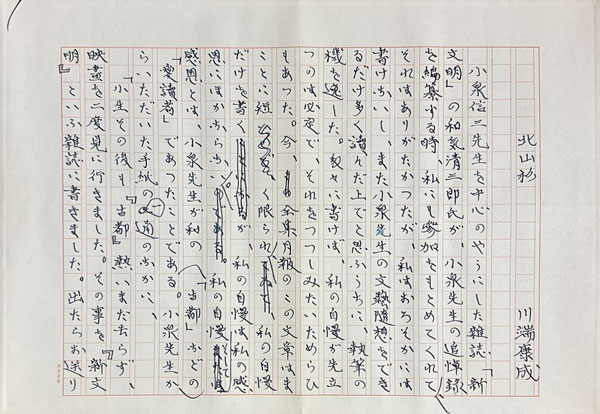 北山杉　川端康成
小泉信三先生を中心のやうにした雑誌「新
文明」の和気清三郎氏が、小泉先生の追悼録
を編纂する時、私にも参加をもとめてくれて、
それはありがたかつたが、私はおろそかには
書けないし、また小泉先生の文藝随想をでき
るだけ多く讀んだ上でと思ふうちに、執筆の
機を逸した。数々に書けば、私の自慢が先立
つのは必定で、それをつつしみたいためらひ
もあつた。今、全集月報のこの文章はま
ことに短く限られ、私の自慢
だけを書くが、私の自慢は私の感
恩にほかならない。私の自慢そして
感恩とは、小泉先生が私の「古都」などの
「愛讀者」であつたことである。小泉先生か
らいただいた手紙の一通のなかに、
「小生その後も『古都』熱いまだ去らず、
映畫を二度見に行きました。その事を『新文
明』といふ雑誌に書きました。出たらお送り